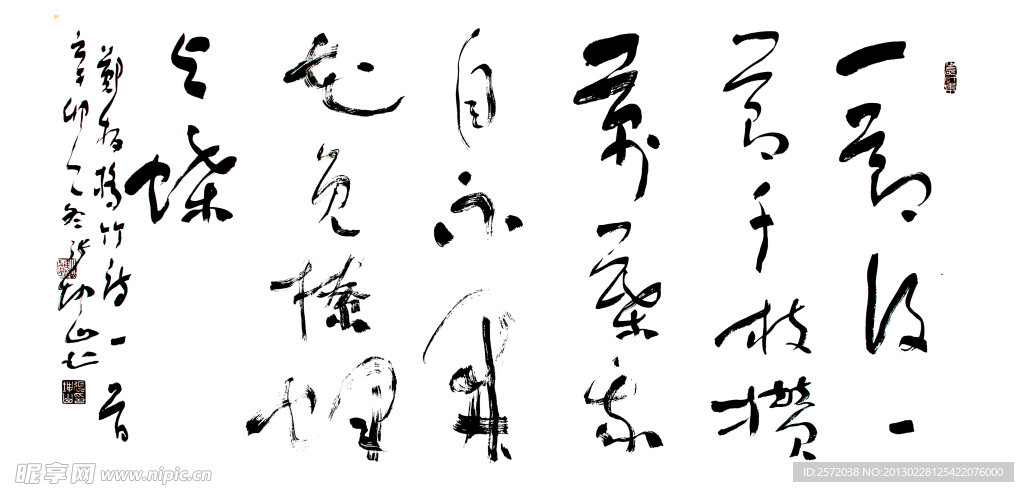 一節復一
節千枝攢
萬葉我
自不開
花免撩蜂
与蝶
鄭板橋竹詩一首
辛卯之冬張坤山书
昵享网 www.nipic.cn
ID:2572038 NO:20130228125422076000